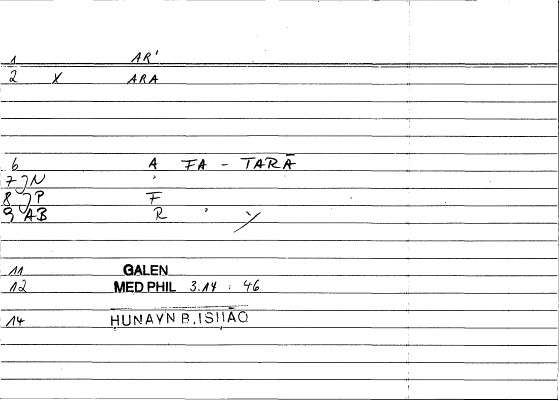 1 AR'
2 X ARA
6 A FA - TARĀ
7 JN '
8 JP F
9 AB R ' Y
11 GALEN
12 MED PHIL 3.14 : 46
14 HUNAYN B. ISHĀQ